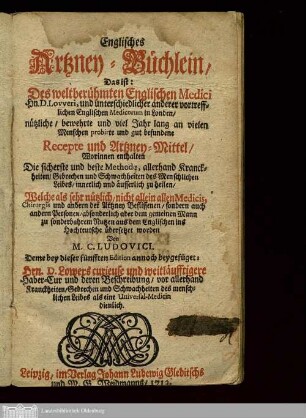 Englisches
Artzney-Büchlein/
Das ist:
Des weltberühmten Englischen Medici
Hn. D. Lovveri, und unterschiedlicher anderer vortreff-
lichen Englischen Medicorum in Londen/
nützliche/ bewehrte und viel Jahr lang an vielen
Menschen probirte und gut befundene
Recepte und Artzney-Mittel/
Worinnen enthalten
Die sicherste und beste Methode, allerhand Kranck-
heiten/ Gebrechen und Schwachheiten des Menschlichen
Leibes/ innerlich und äusserlich zu heilen/
Welche als sehr nützlich/ nicht allein allen Medicis,
Chirurgis und andern der Artzney Beflissenen/ sondern auch
andern Personen/ absonderlich aber dem gemeinen Mann
zu sonderbahrem Nutzen aus dem Englischen ins
Hochteutsche übersetzet worden
Von
M. C. LUDOVICI.
Deme bey dieser fünfften Edition annoch beygefüget:
Hrn. D. Lowers curieuse und weitläufftigere
Haber-Cur und deren Beschreibung/ vor allerhand
Kranckheiten/ Gebrechen und Schwachheiten des mensch-
lichen Leibes als eine Universal-Medicin
dienlich.
Leipzig/ im Verlag Johann Ludewig Gleditschs
und M. G. Weidmanns/ 1713.
Landesbibliothek Oldenburg